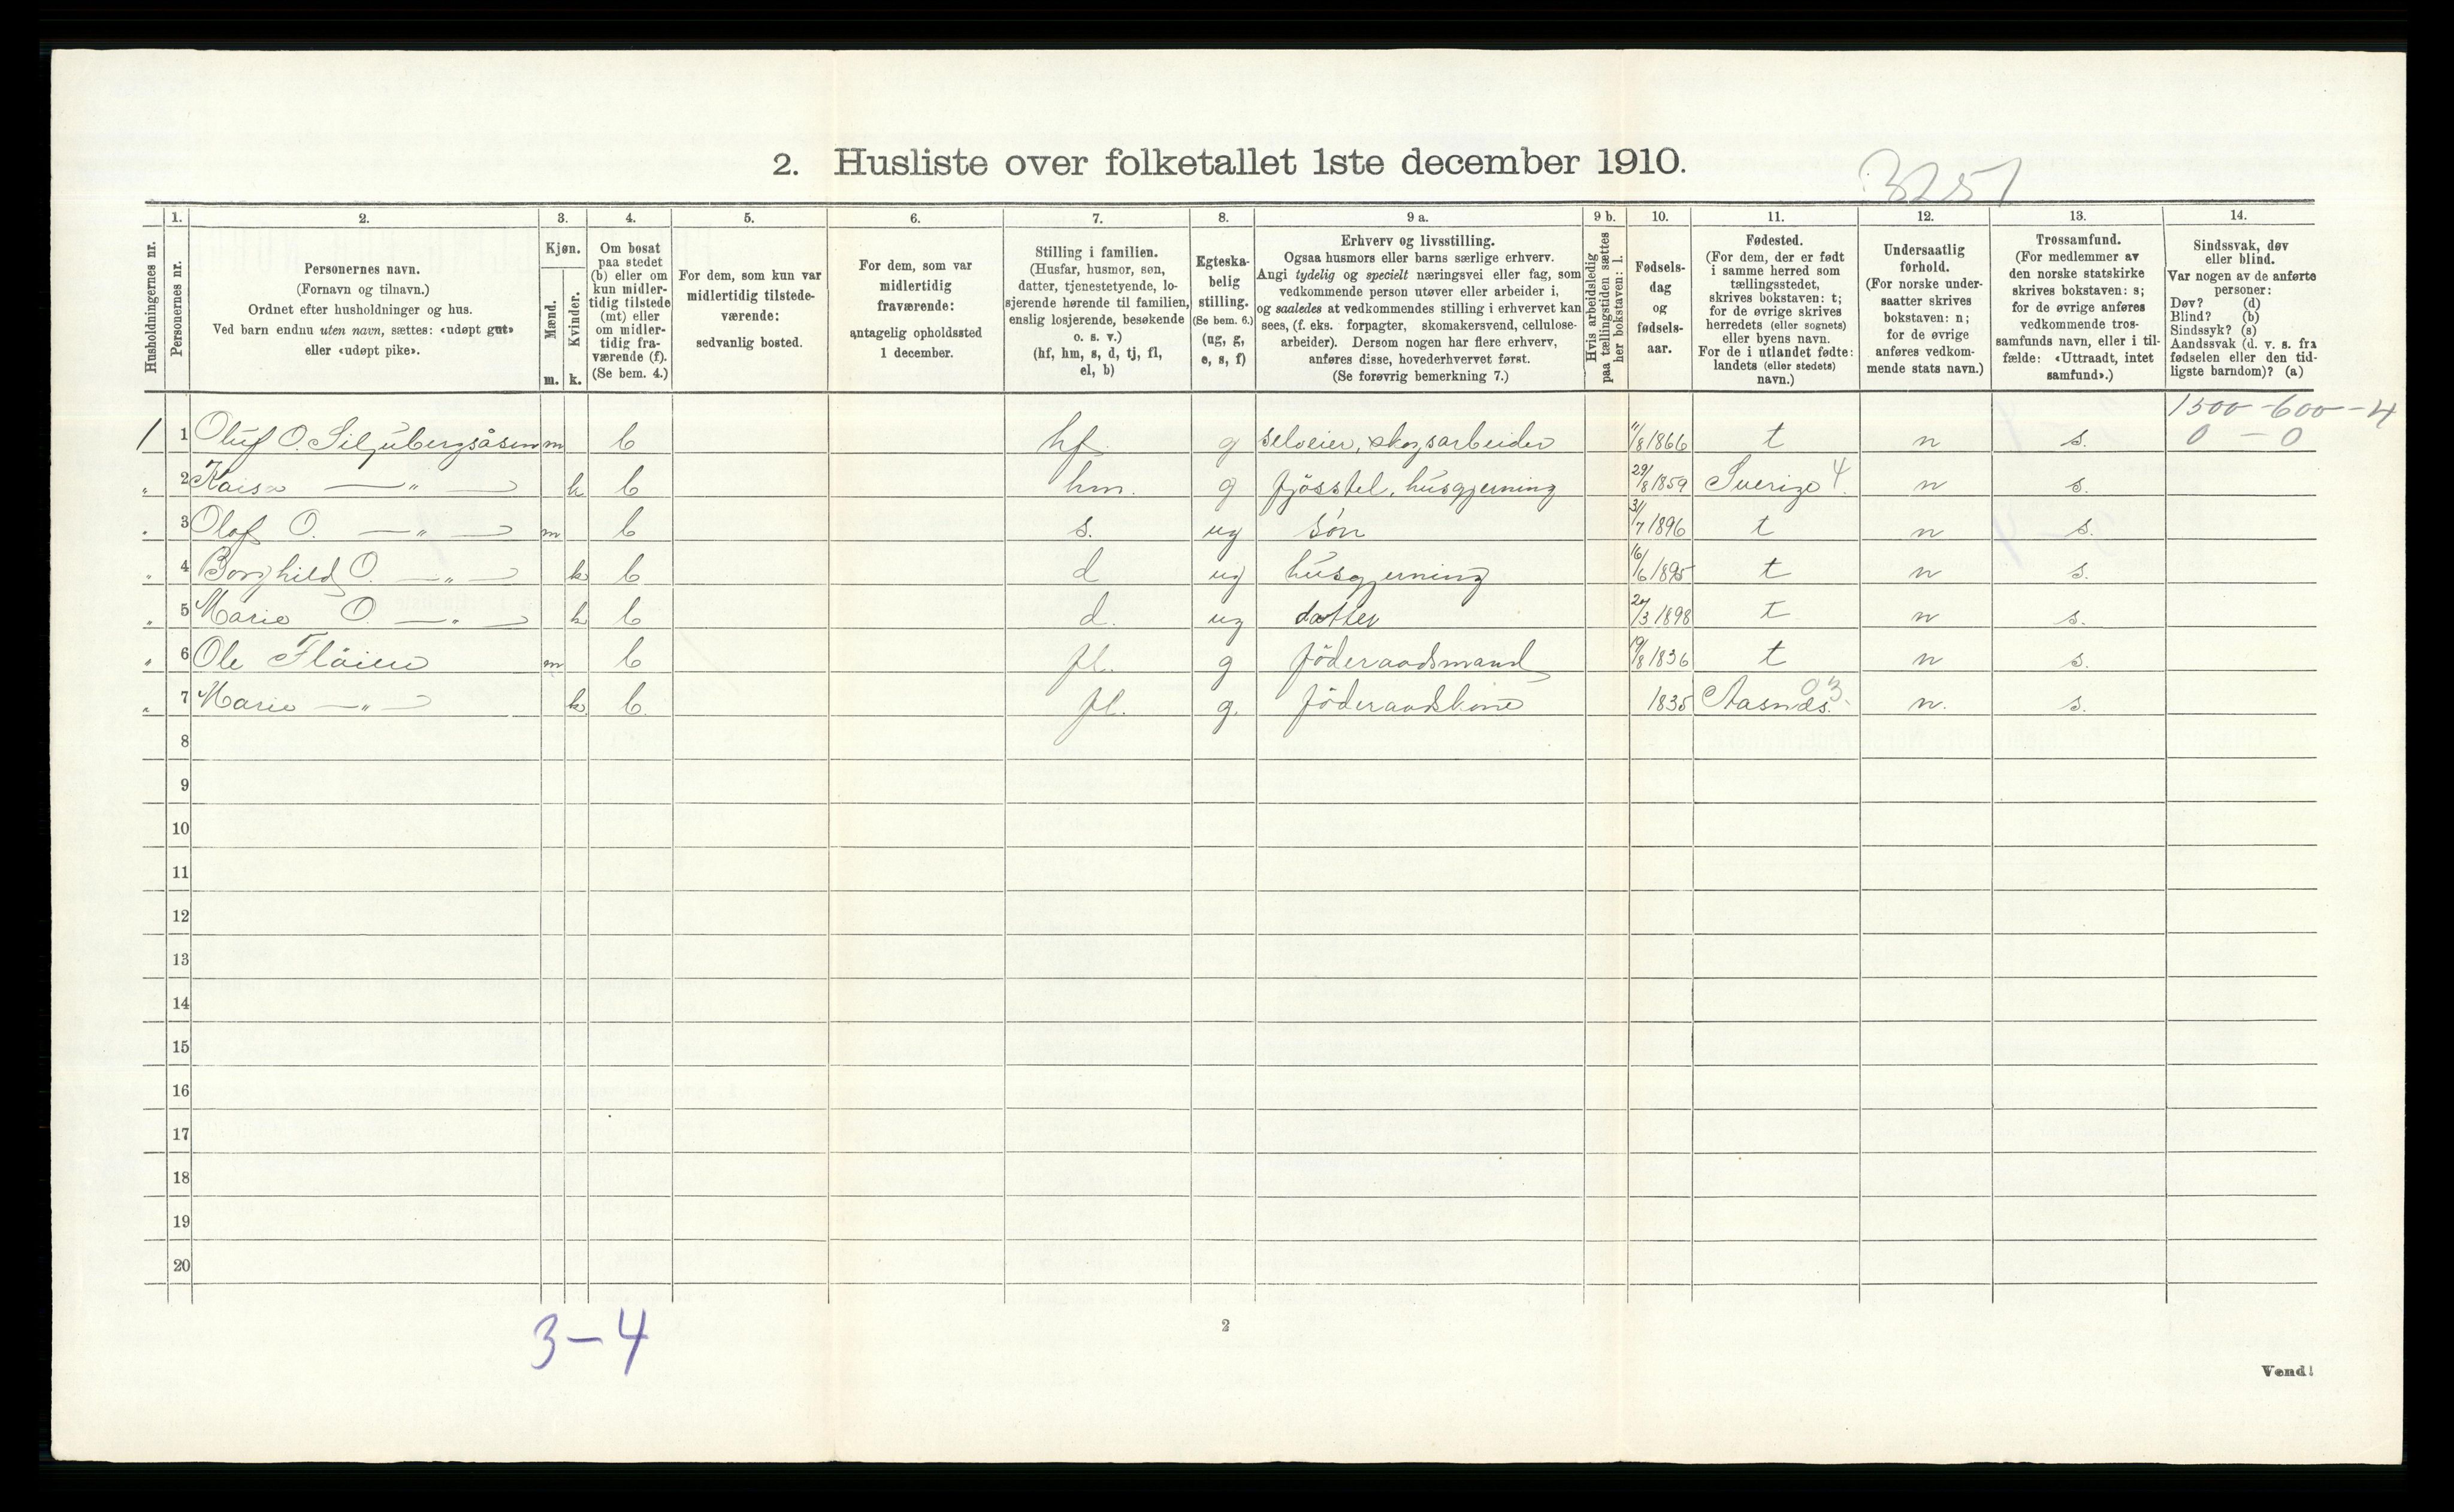 2. Husliste over folketallet 1ste december 1910.
3251
Husholdningernes nr.
1.
Personernes nr.
2.
Personernes navn.
(Fornavn og tilnavn.)
Ordnet efter husholdninger og hus.
Ved barn endnu uten navn, sættes: «udøpt gut»
eller «udøpt pike».
3.
Kjøn.
Mænd.
Kvinder.
m. k.
4.
Om bosat
paa stedet
(b) eller om
kun midler-
tidig tilstede
(mt) eller
om midler-
tidig fra-
værende (f).
(Se bem. 4.)
5.
For dem, som kun var
midlertidig tilstede-
værende:
sedvanlig bosted.
6.
For dem, som var
midlertidig
fraværende:
antagelig opholdssted
1 december.
7.
Stilling i familien.
(Husfar, husmor, søn,
datter, tjenestetyende, lo-
sjerende hørende til familien,
enslig losjerende, besøkende
o. s. v.)
(hf, hm, s, d, tj, fl,
el, b)
8.
Egteska-
belig
stilling.
(Se bem. 6.)
(ug, g,
e, s, f)
9 a.
Erhverv og livsstilling.
Ogsaa husmors eller barns særlige erhverv.
Angi tydelig og specielt næringsvei eller fag, som
vedkommende person utøver eller arbeider i,
og saaledes at vedkommendes stilling i erhvervet kan
sees, (f. eks. forpagter, skomakersvend, cellulose-
arbeider). Dersom nogen har flere erhverv,
anføres disse, hovederhvervet først.
(Se forøvrig bemerkning 7.)
9 b.
Hvis arbeidsledig
paa tællingstiden sættes
her bokstaven: l.
10.
Fødsels-
dag
og
fødsels-
aar.
11.
Fødested.
(For dem, der er født
i samme herred som
tællingsstedet,
skrives bokstaven: t;
for de øvrige skrives
herredets (eller sognets)
eller byens navn.
For de i utlandet fødte:
landets (eller stedets)
navn.)
12.
Undersaatlig
forhold.
(For norske under-
saatter skrives
bokstaven: n;
for de øvrige
anføres vedkom-
mende stats navn.)
13.
Trossamfund.
(For medlemmer av
den norske statskirke
skrives bokstaven: s;
for de øvrige anføres
vedkommende tros-
samfunds navn, eller i til-
fælde: «Uttraadt, intet
samfund».)
14.
Sindssvak, døv
eller blind.
Var nogen av de anførte
personer:
Døv? (d)
Blind? (b)
Sindssyk? (s)
Aandssvak (d. v. s. fra
fødselen eller den tid-
ligste barndom)? (a)
1500-600-4
1 1 Oluf O. Siljubergsåsen m b hf. g selveier, skogsarbeider 11/8 1866 t n s. 0 - 0
" 2 Kaisa — " — k b hm. g fjösstel, husgjerning 29/8 1859 Sverige 4. n s.
" 3 Olof O. — " — m b s. ug sön 31/7 1896 t n s.
" 4 Borghild O. — " — k b d ug husgjerning 16/6 1895 t n s.
" 5 Marie O. — " — k b d. ug datter 24/3 1898 t n s.
" 6 Ole Flöien m b fl. g föderaadsmand 19/8 1836 t n s.
" 7 Marie — " — k b. fl. g. föderaadskone 1835 Aasnæs. 03 n. s.
8
9
10
11
12
13
14
15
16
17
18
19
20
3-4
2
Vend!